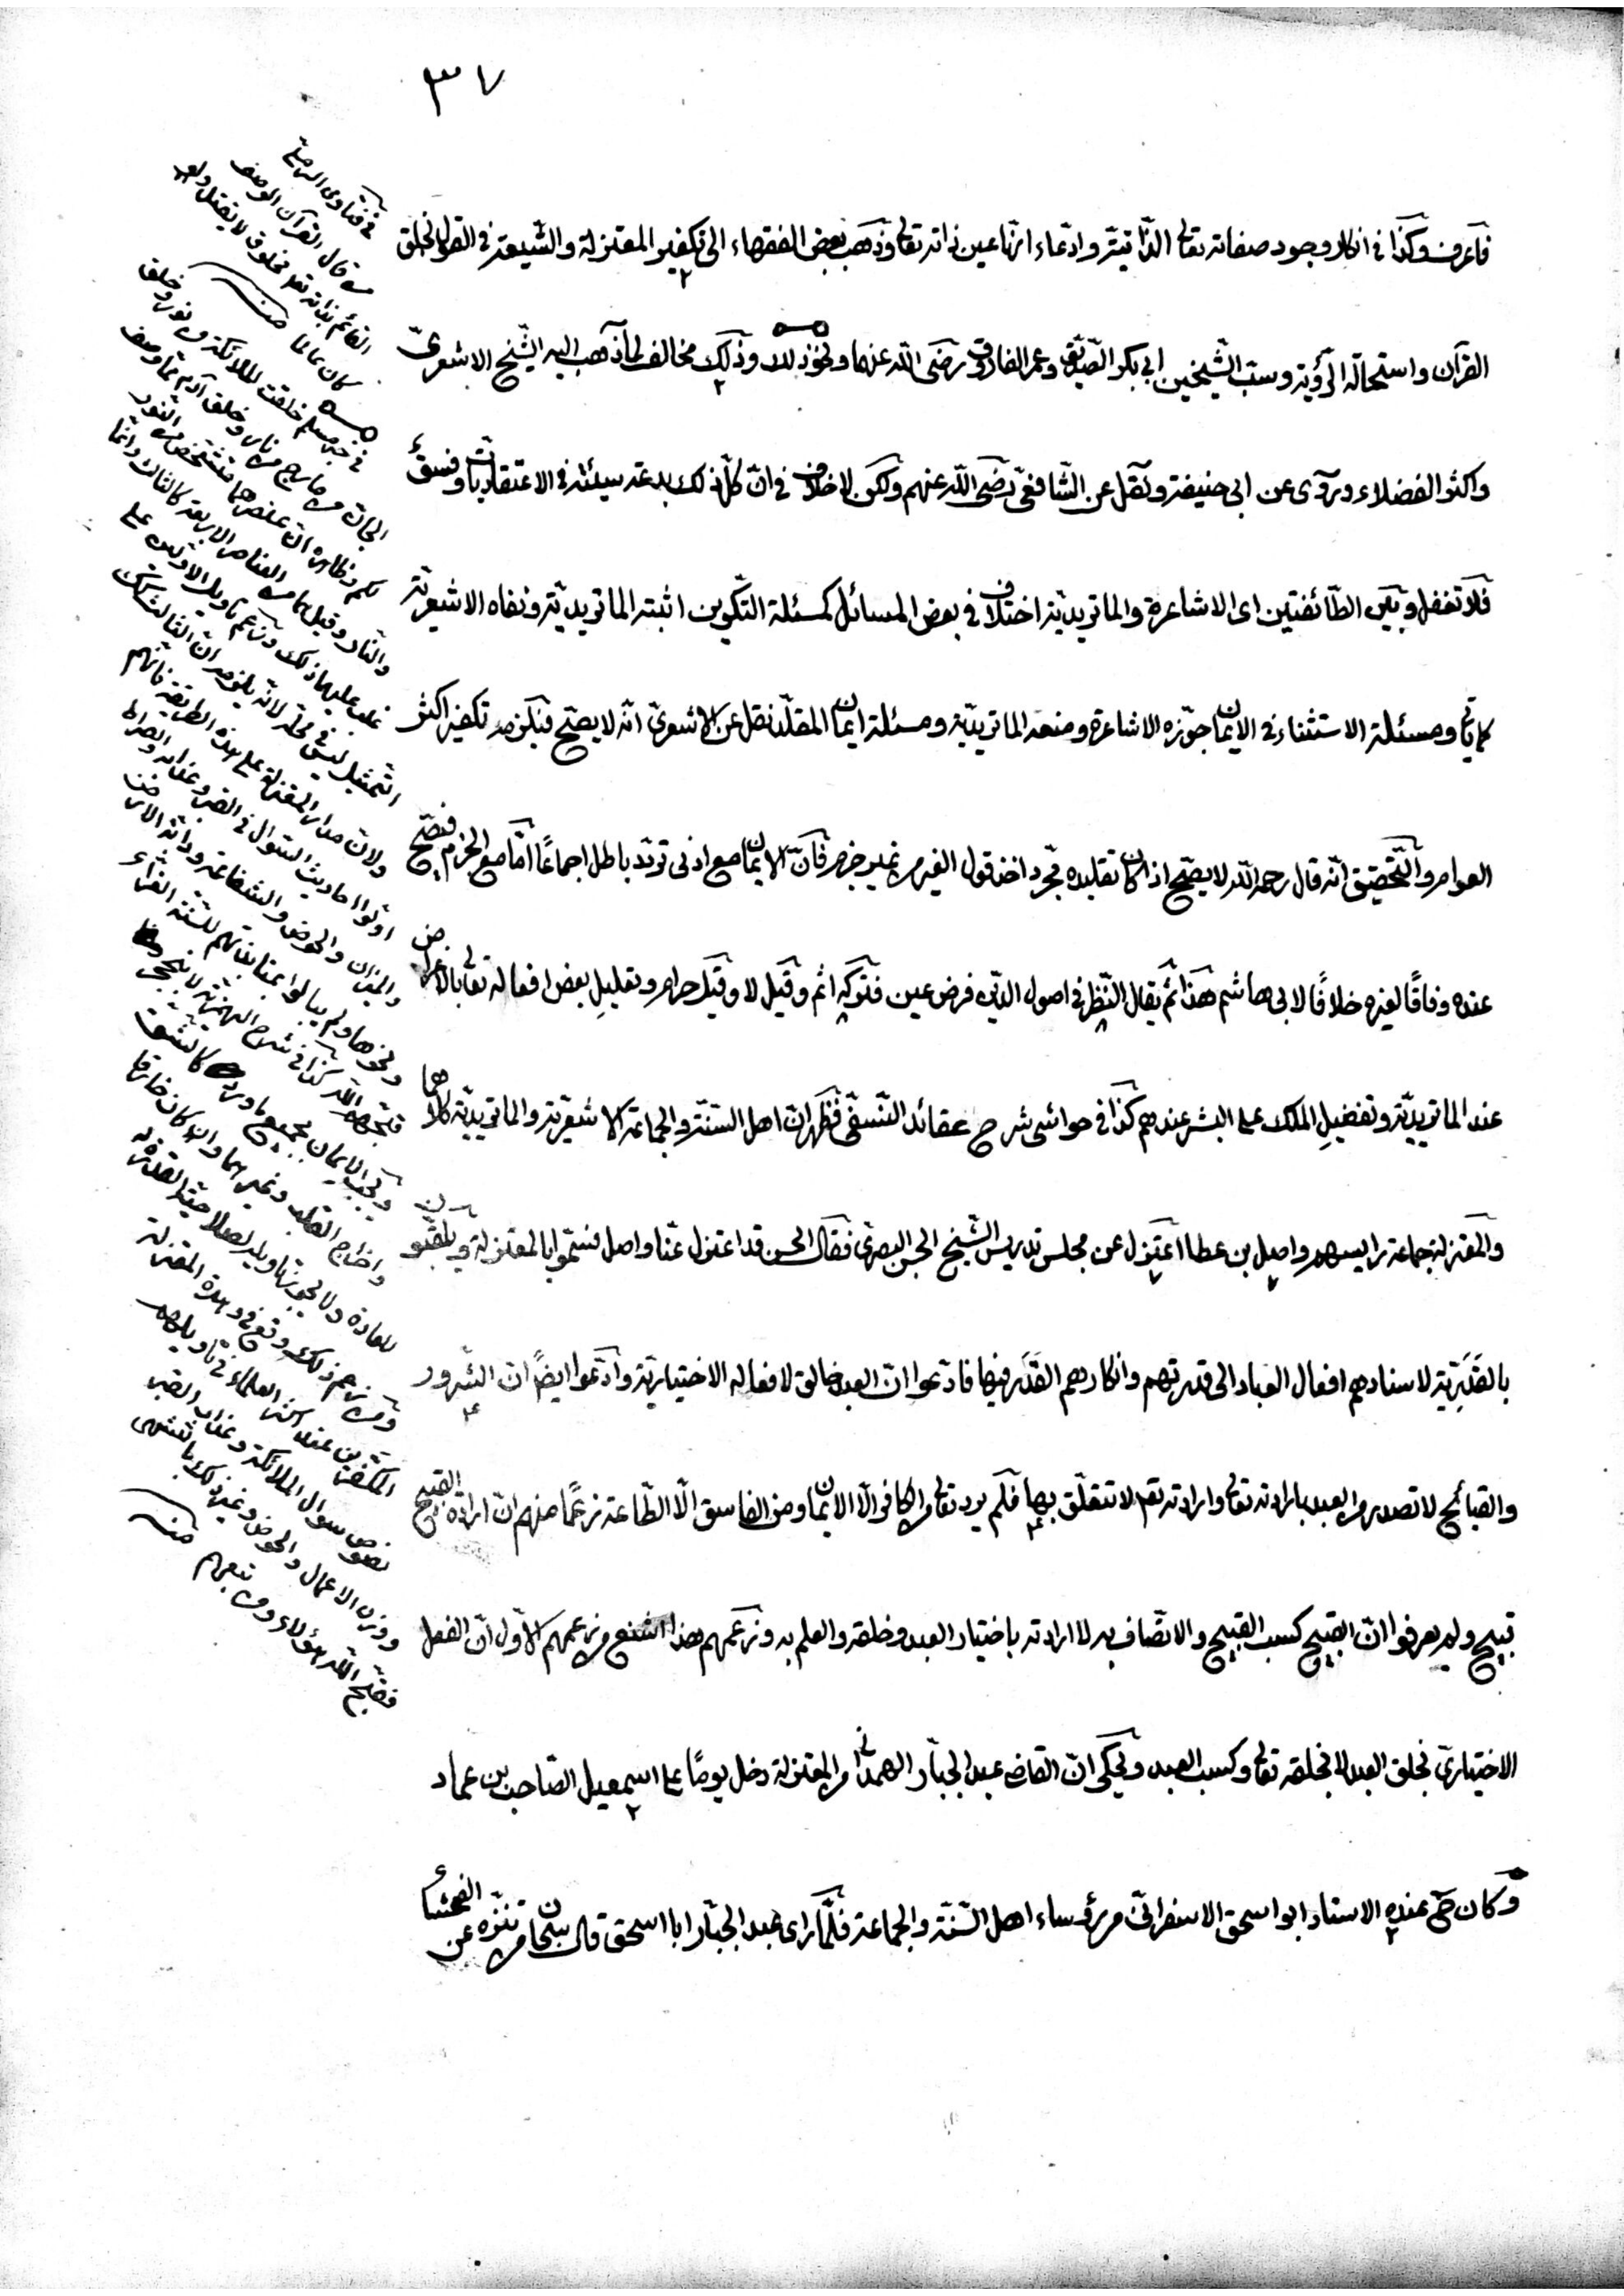 ٣٧
فاعرف وكذا في انكار وجود صفاته تعالى الذاتيّة وادّعاء انّها عين ذاته تعالى وذهب بعض الفقهاء الى تكفير المعتزلة والشّيعة في القول بخلق
القرآن واستحالة الرّؤية وسبّ الشّيخين ابي بكر الصّدّيق وعمر الفاروق رضى اللّه عنهما ونحو ذلك وذلك مخالف لما ذهب اليه الشّيخ الاشعرىّ
واكثر الفضلاء وروى عن ابى حنيفة ونقل عن الشّافعىّ رضى اللّه عنهم ولكن لا خلاف في انّ كلّ ذلك بدعة سيئة في الاعتقاديات وفسق
فلا تغفل وبين الطّائفتين اى الاشاعرة والماتريديّة اختلاف في بعض المسائل كمسئلة التّكوين اثبته الماتريديّة ونفاه الاشعريّة
كما يأتي ومسئلة الاستثناء في الايمان جوّزه الاشاعرة ومنعه الماتريديّة ومسئلة ايمان المقلّد نقل عن الاشعرىّ انّه لا يصحّ فيلزم تكفير اكثر
العوام والتّحقيق انّه قال رحمه اللّه لا يصحّ اذا كان تقليده مجرّد اخذ قول الغير من غير جزم فانّ الايمان مع ادنى تردّد باطل اجماعًا امّا مع الجزم فيصحّ
عنده وفاقًا لغيره خلافًا لابى هاشم هذا ثمّ يقال النّظر في اصول الدّين فرض عين فتركه اثم وقيل لا وقيل حرام وتعليل بعض افعاله تعالى بالاعراض
عند الماتريديّة وتفضيل الملك على البشر عندهم كذا في حواشى شرح عقائد النّسفىّ فظهر انّ اهل السّنّة والجماعة الاشعريّة والماتريديّة كلاهما
والمعتزلة جماعة رايسهم واصل بن عطا اعتزل عن مجلس تدريس الشّيخ الحسن البصرىّ فقال الحسن قد اعتزل عنّا واصل فسمّوا بالمعتزلة ويلقّبون
بالقدريّة لاسنادهم افعال العباد الى قدرتهم وانكارهم القدر فيها فادّعوا انّ العبد خالق لافعاله الاختياريّة وادّعوا ايضًا انّ الشّرور
والقبائح لا تصدر من العبد بارادته تعالى وارادته تعالى لا تتعلّق بها فلم يرد تعالى من الكافر الّا الايمان ومن الفاسق الّا الطّاعة زعمًا منهم انّ ارادة القبيح
قبيح ولم يعرفوا انّ القبيح كسب القبيح والاتّصاف به لا ارادته باختيار العبد وخلقه والعلم به وزعمهم هذا اشنع من زعمهم الاوّل انّ الفعل
الاختيارىّ بخلق العبد لا بخلقه تعالى وكسب العبد ويحكى انّ القاضى عبد الجبّار الهمدانى من المعتزلة دخل يومًا على اسمعيل الصّاحب بن عماد
وكان ح عنده الاستاد ابو اسحق الاسفرائنىّ من رؤساء اهل السّنّة والجماعة فلمّا راى عبد الجبّار ابا اسحق قال سبحان من تنزّه عن الفحشاء
في فتاوى الرملى
من قال القرآن الوصف
القائم بذاته تعالى مخلوق لا يقتل ولو
كان عالما منه
في خبر مسلم خلقت الملائكة من نور وخلق
الجانّ من مارج من نار وخلق آدم ممّا وصف
لكم وظاهره ان عنصرهما متشخص من النور
والنار وقيل هما من العناصر الاربعة كالثالث وانما
غلب عليهما ذلك وزعم تأويل الاولين على
التمثيل ليس في محله لانه يلزم ان الثالث كذلك
ولان مدار المعتزلة على هذه الطريقة فانهم
اولوا احاديث السؤال في القبر وعذابه والصراط
والميزان والحوض والشفاعة ودابة الارض
ونحوها ولم يبالوا بمنابذتهم للسنة الغراء
قبحهم الله كذا في شرح الهمزية لابن حجر
ويجب الايمان بجميع ما ورد كانشق
واخراج القلب وغيرهما وان كان خارقا
للعادة ولا يجوز تأويله لصلاحية القدرة له
ومن زعم ذلك وقع في وهدة المعتزلة
المكفرين عند اكثر العلماء في تأويلهم
نصوص سؤال الملائكة وعذاب القبر
ووزن الاعمال والحوض وغير ذلك بالتشهى
فقبح الله هؤلاء ومن تبعهم منه